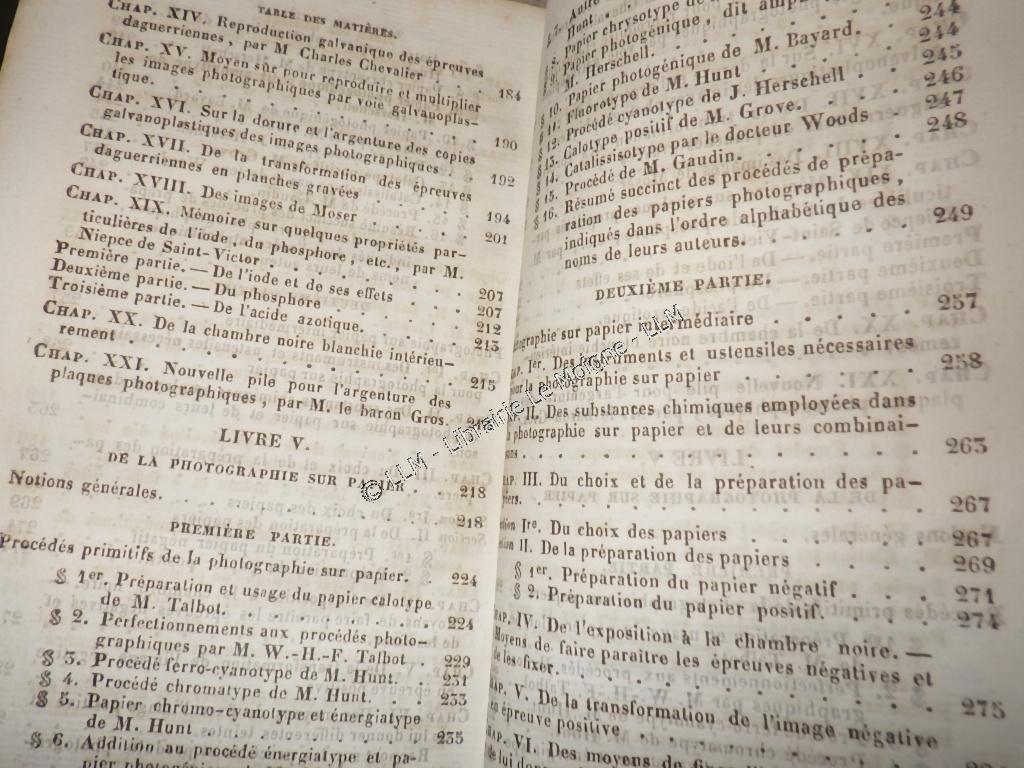 TABLE DES MATIÈRES.
CHAP. XIV. Reproduction galvanique des épreuves
daguerriennes, par M Charles Chevalier . . . 184
CHAP. XV. Moyen sûr pour reproduire et multiplier
les images photographiques par voie galvanoplas-
tique. . . . . . . . . . . . . 190
CHAP. XVI. Sur la dorure et l'argenture des copies
galvanoplastiques des images photographiques . . 192
CHAP. XVII. De la transformation des épreuves
daguerriennes en planches gravées . . . . . 194
CHAP. XVIII. Des images de Moser . . . . . 201
CHAP. XIX. Mémoire sur quelques propriétés par-
ticulières de l'iode, du phosphore, etc., par M.
Niepce de Saint-Victor . . . . . . . . 207
Première partie. — De l'iode et de ses effets . . . 207
Deuxième partie. — Du phosphore . . . . . 212
Troisième partie. — De l'acide azotique. . . . . 213
CHAP. XX. De la chambre noire blanchie intérieu-
rement . . . . . . . . . . . . 215
CHAP. XXI. Nouvelle pile pour l'argenture des
plaques photographiques, par M. le baron Gros.
LIVRE V.
DE LA PHOTOGRAPHIE SUR PAPIER . . . 218
Notions générales. . . . . . . . . . 218
PREMIÈRE PARTIE.
Procédés primitifs de la photographie sur papier. . 224
§ 1er. Préparation et usage du papier calotype
de M. Talbot. . . . . . . . . . 224
§ 2. Perfectionnements aux procédés photo-
graphiques par M. W.-H.-F. Talbot . 229
§ 3. Procédé ferro-cyanotype de M. Hunt. . 231
§ 4. Procédé chromatype de M. Hunt. . . 233
§ 5. Papier chromo-cyanotype et énergiatype
de M. Hunt . . . . . . . . . 235
§ 6. Addition au procédé énergiatype et pa-
§ 7. Autre
Hunt
§ 8. Papier chrysotype de
§ 9. Papier photogénique, dit
M. Herschell. . . . . . . . 244
§ 10. Papier photogénique de M. Bayard. . 244
§ 11. Fluorotype de M. Hunt . . . . . 245
§ 12. Procédé cyanotype de J. Herschell . . 246
§ 13. Calotype positif de M. Grove. . . . 247
§ 14. Catalissisotype par le docteur Woods . 248
§ 15. Procédé de M. Gaudin. . . . . .
§ 16. Résumé succinct des procédés de prépa-
ration des papiers photographiques,
indiqués dans l'ordre alphabétique des
noms de leurs auteurs. . . . . . 249
DEUXIÈME PARTIE.
ographie sur papier intermédiaire . . . . . 257
AP. Ier. Des instruments et ustensiles nécessaires
pour la photographie sur papier . . . . . 258
II. Des substances chimiques employées dans
photographie sur papier et de leurs combinai-
sons . . . . . . . . . . . . . 263
AP. III. Du choix et de la préparation des pa-
piers. . . . . . . . . . . . . 267
tion Ire. Du choix des papiers . . . . . . 267
tion II. De la préparation des papiers . . . . 269
§ 1er. Préparation du papier négatif . . . 271
§ 2. Préparation du papier positif. . . . 274
AP. IV. De l'exposition à la chambre noire. —
Moyens de faire paraître les épreuves négatives et
de les fixer. . . . . . . . . . . 275
AP. V. De la transformation de l'image négative
en épreuve positive . . . . . . . .
AP. VI. Des moyens de
© LLM - Librairie Le Moigne - LLM